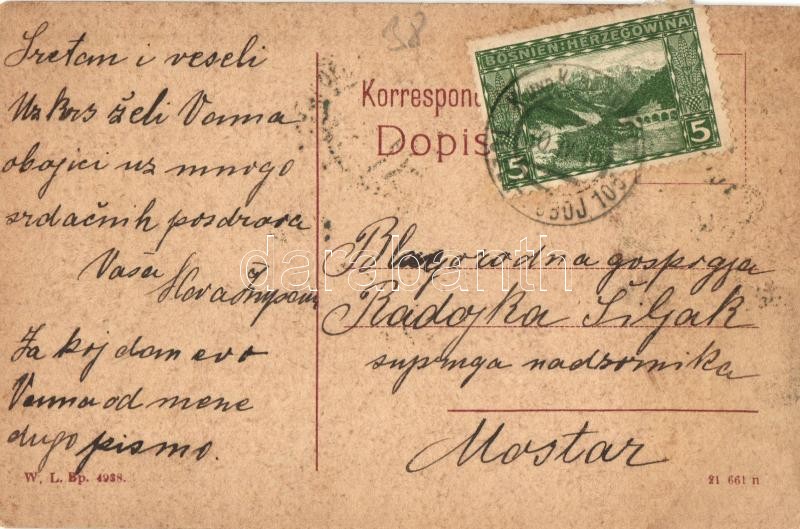 38
Sretan i veseli
Uzkrs želi Vama
obojici uz mnogo
srdačnih pozdrava
Vaša
Za koj dan evo
Vama od mene
dugo pismo.
W. L. Bp. 4938.
Korrespon
Dopis
BOSNIEN-HERZEGOWINA
5 5
Blagorodna gosprgja
Radojka Šiljak
supruga nadzornika
Mostar
21 661 n
darabanth